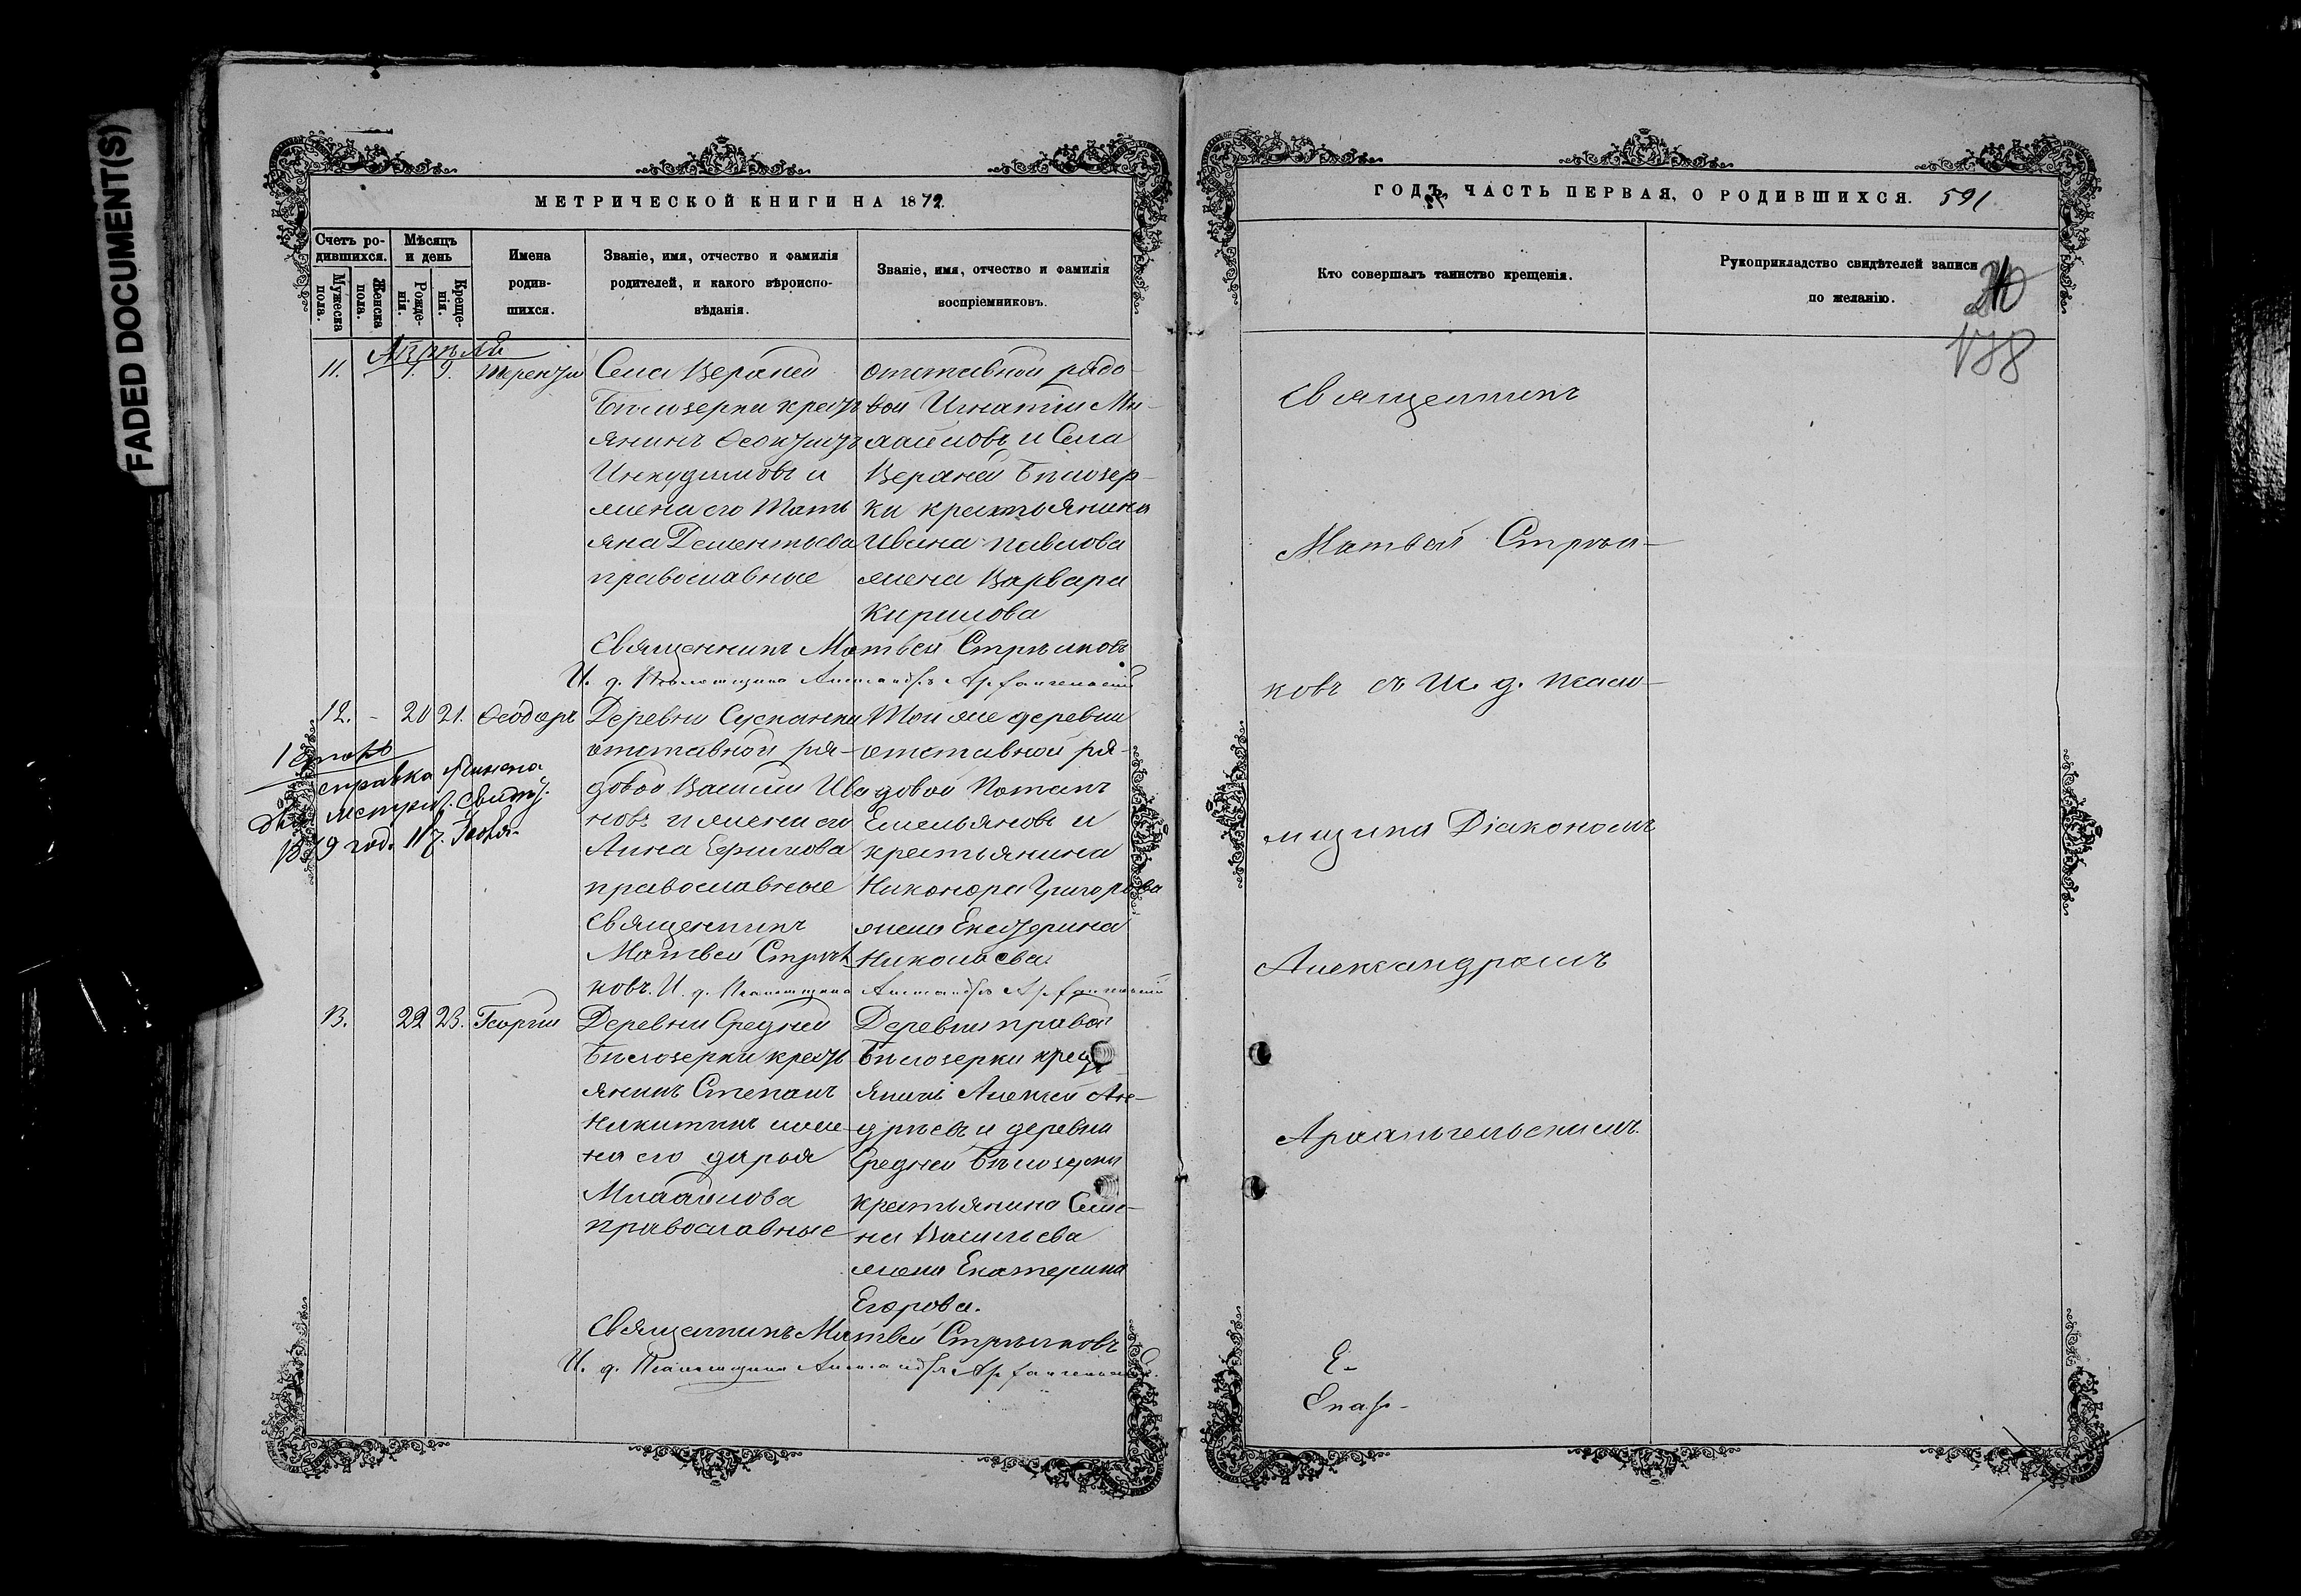 FADED DOCUMENT(S)
МЕТРИЧЕСКОЙ КНИГИ НА 1872.
Счетъ ро-
дившихся.
Мужеска
пола.
Женска
пола.
Мѣсяцъ
и день
Рожде-
нія.
Креще-
нія.
Имена
родив-
шихся.
Званіе, имя, отчество и фамилія
родителей, и какого вѣроиспо-
вѣданія.
Званіе, имя, отчество и фамилія
воспріемниковъ.
Апрѣль
11. 9. Терентій
Села Верхней
Бѣлозерки крест
янинъ Ѳеоктистъ
Инкудимовъ и
жена его Тать
яна Дементьева
православные
отставной рядо-
вой Игнатій Ми-
хайловъ и Села
Верхней Бѣлозер-
ки крестьянина
Ивана Павлова
жена Варвара
Кирилова
Священникъ Матвей Стрѣлковъ
И. д. Псаломщика Александръ Архангельскій
12. - 20 21. Ѳеодоръ
Деревни Сусканки
отставной ря-
довой Василій Ива
новъ и жена его
Анна Ермилова
православные
Священникъ
Матвей Стрѣл
ковъ. И. д. Псаломщика Александръ Архангельскій
Той же деревни
отставной ря-
довой Потапъ
Емельяновъ и
крестьянина
Никонора Григорьева
жена Екатерина
Николаева
справка
метрич. Свидѣт.
13. 22 23. Георгій
Деревни Средней
Бѣлозерки крест
янинъ Степанъ
Никитинъ и же-
на его Дарья
Михайлова
православные
Деревни правой
Бѣлозерки крест
янинъ Алексей Ан-
дреевъ и деревни
Средней Бѣлозерки
крестьянина Семе-
на Васильева
жена Екатерина
Егорова.
Священникъ Матвей Стрѣлковъ
И. д. Псаломщика Александръ Архангельскій.
ГОДЪ, ЧАСТЬ ПЕРВАЯ, О РОДИВШИХСЯ. 591
Кто совершалъ таинство крещенія.
Рукоприкладство свидѣтелей записи
по желанію.
138
Священникъ
Матвей Стрѣл-
ковъ съ И. д. псало-
мщика Діакономъ
Александромъ
Архангельскимъ.